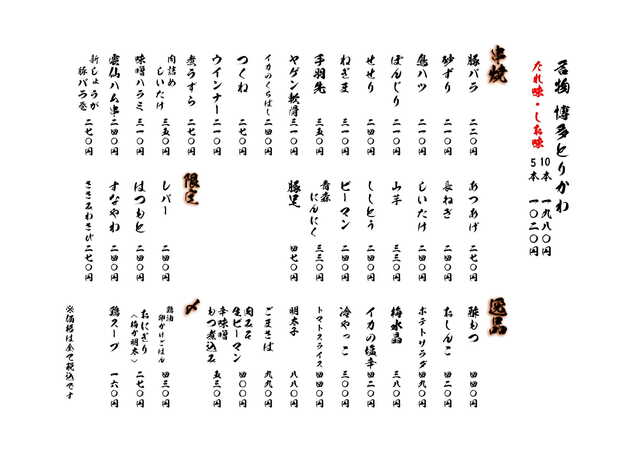 名物 博多とりかわ
たれ味・しお味
10本 一九八〇円
5本 一〇二〇円
串焼
豚バラ 二二〇円
砂ずり 二一〇円
鳥ハツ 二一〇円
ぼんじり 二一〇円
せせり 二一〇円
ねぎま 三一〇円
手羽先 三五〇円
ヤゲン軟骨 三一〇円
イカのくちばし 二四〇円
つくね 二七〇円
ウインナー 二一〇円
煮うずら 二七〇円
肉詰めしいたけ 三五〇円
味噌ハラミ 三一〇円
雲仙ハム串 二四〇円
新しょうが豚バラ巻 二七〇円
あつあげ 二七〇円
長ねぎ 二四〇円
しいたけ 二四〇円
山芋 三三〇円
ししとう 二四〇円
ピーマン 二四〇円
青森にんにく 三三〇円
豚足 四七〇円
限定
レバー 二四〇円
はつもと 二四〇円
すなやわ 二四〇円
ささみわさび 二七〇円
逸品
酢もつ 四四〇円
おしんこ 四二〇円
ポテトサラダ 四九〇円
梅水晶 三八〇円
イカの塩辛 四二〇円
冷やっこ 三〇〇円
トマトスライス 四四〇円
明太子 八八〇円
ごまさば 九九〇円
肉みそ生ピーマン 四〇〇円
辛味噌もつ煮込み 五五〇円
〆
鶏油卵かけごはん 四三〇円
おにぎり(梅か明太) 二七〇円
鶏スープ 一六〇円
※価格は全て税込です